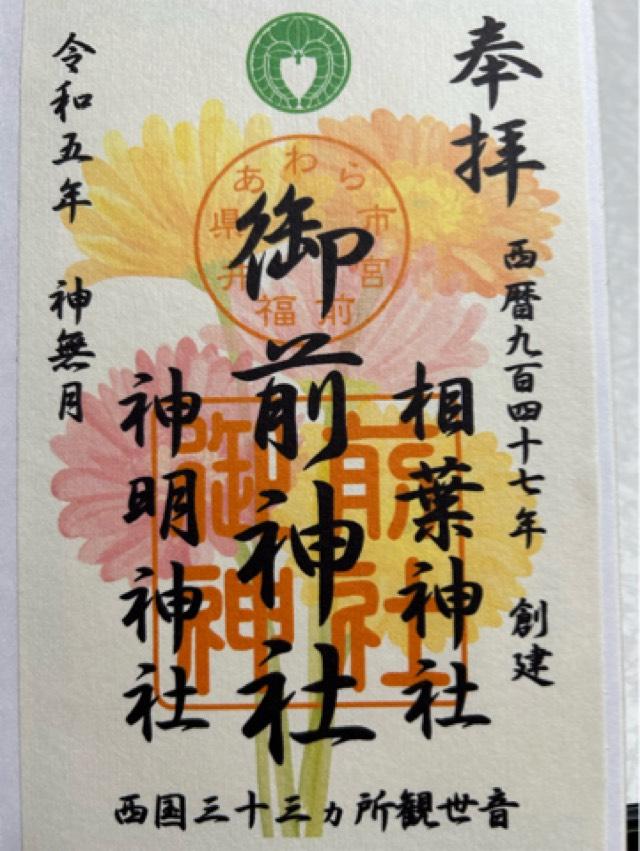 奉拝
西暦九百四十七年 創建
相葉神社
御前神社
神明神社
令和五年 神無月
福井県あわら市宮前
御前
神社
西国三十三ヵ所観世音